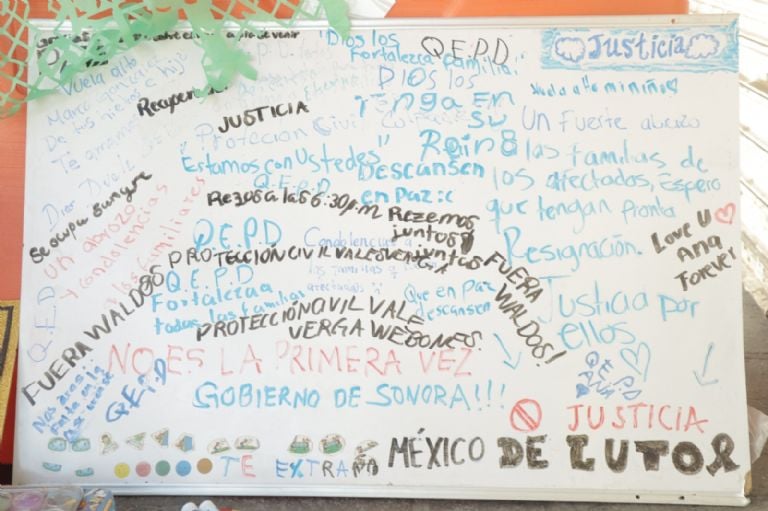 "Dios los
Fortalezca familia."
Q.E.P.D
Justicia
Vuela alto
Marco gonzalez
De tus nietos e hijo
Te amamos
JUSTICIA
DIOS los
Tenga EN
su
Vuela alto mi niño
"Protección Civil
Estamos con Ustedes"
Descansen
en Paz :c
Un Fuerte abrazo
a las familias de
los afectados, Espero
que tengan pronta
Resignación.
Q.E.P.D
Rezos a las 6:30 p.m
Rezemos
juntos
Dios
Se ocupa sangre
Un abrazo
y condolencias
a los familiares
Love U
Ana
Forever
Q.E.P.D
PROTECCIÓN CIVIL VALES VERGA
juntos
Condolencias a
las familias
afectadas
Q.E.P.D
Fortaleza a
todas las familias
Que en Paz
descansen
FUERA
WALDOS!
Justicia por
ellos
Q.E.D
FUERA WALDOS
PROTECCIÓN CIVIL VALE
VERGA WEBONES.
NO ES LA PRIMERA VEZ
GOBIERNO DE SONORA!!!
Q.E.P.D
Q.E.P.D
ANA
JUSTICIA
TE EXTRAÑO
MÉXICO DE LUTO